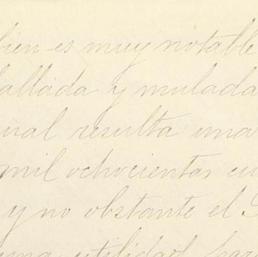 bien es muy notable
allada y mulada
ual resulta una
mil ochocientas cu
y no obstante el
una utilidad